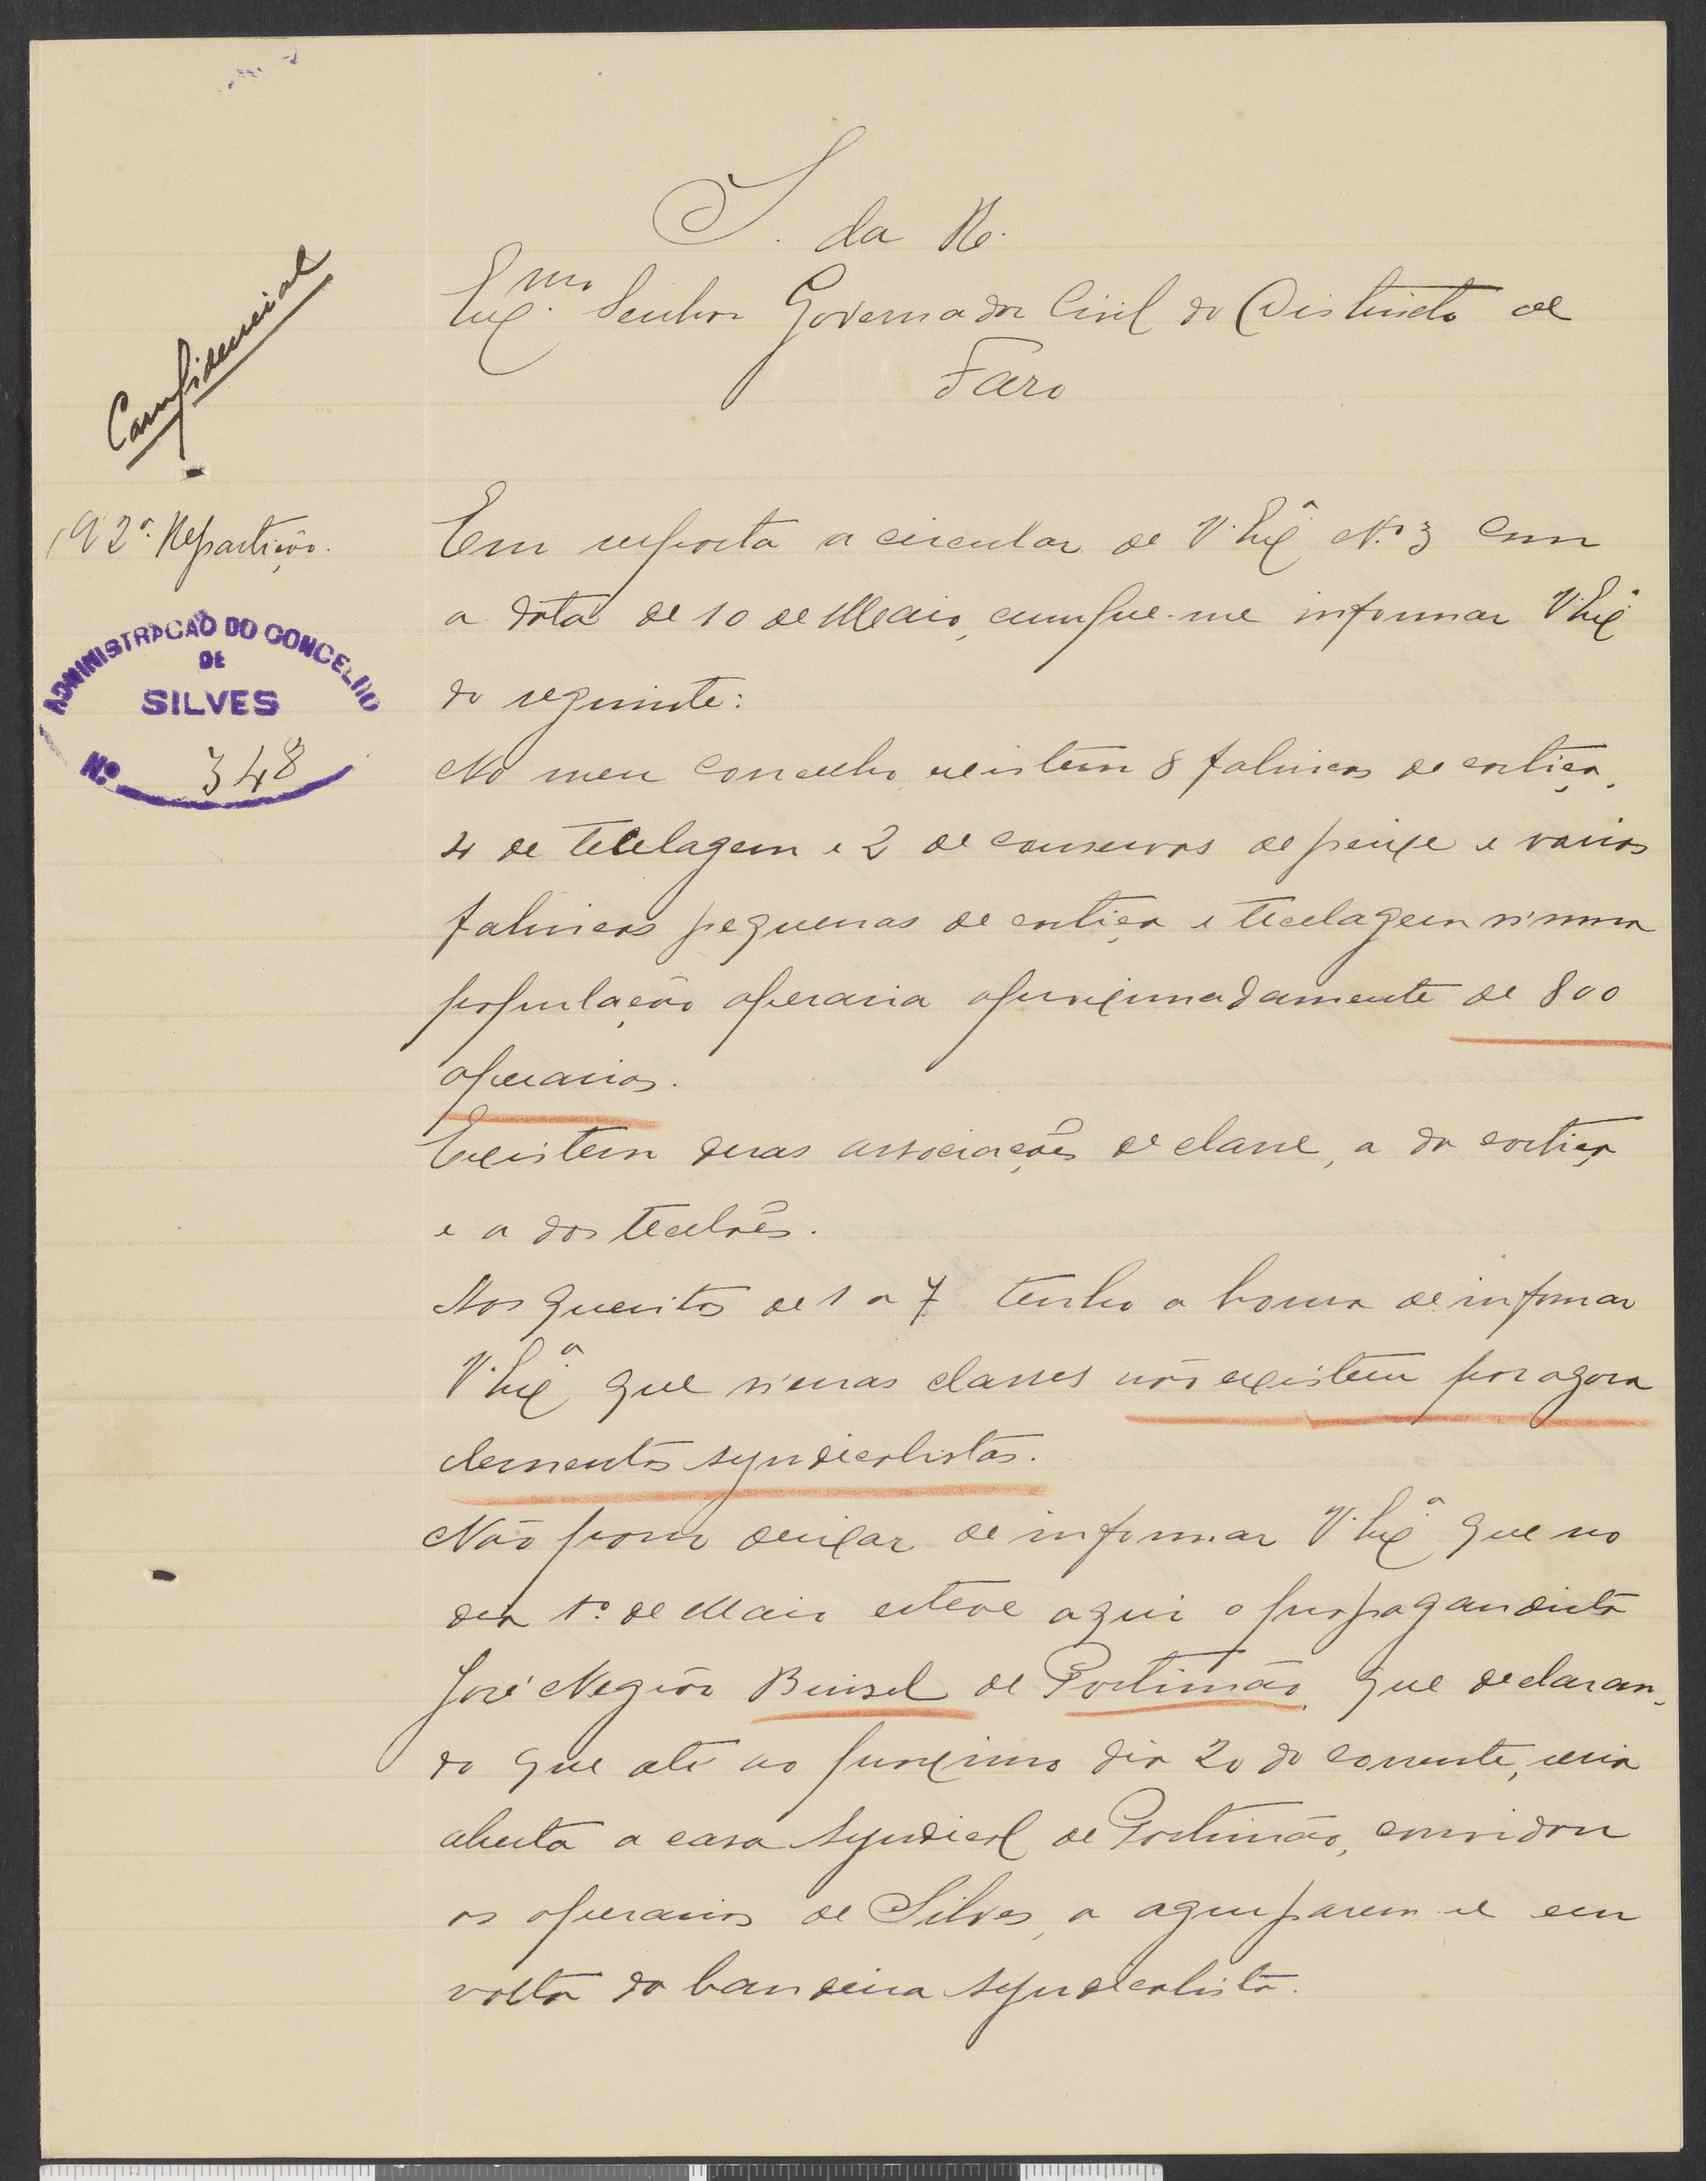 S. da R.
Exmo. Senhor Governador Civil do Districto de
Faro
Confidencial
2ª Repartição.
ADMINISTRAÇÃO DO CONCELHO
DE
SILVES
N.º 348
Em resposta a circular de V. Exª N.º 3 com
a data de 10 de Maio, cumpre-me informar V. Exª
do seguinte:
No meu concelho, existem 8 fabricas de cortiça,
4 de tecelagem e 2 de conservas de peixe e varias
fabricas pequenas de cortiça e tecelagem n'uma
população operaria aproximadamente de 800
operarios.
Existem duas associações de classe, a da cortiça
e a dos tecelões.
Aos quesitos de 1 a 7 tenho a honra de informar
V. Exª que n'essas classes não existem por agora
elementos syndicalistas.
Não posso deixar de informar V. Exª que no
dia 1º de Maio esteve aqui o propagandista
José Negrão Buisel de Portimão, que declaran-
do que até ao proximo dia 20 do corrente, seria
aberta a casa syndical de Portimão, convidou
os operarios de Silves, a agruparem-se em
volta da bandeira syndicalista.